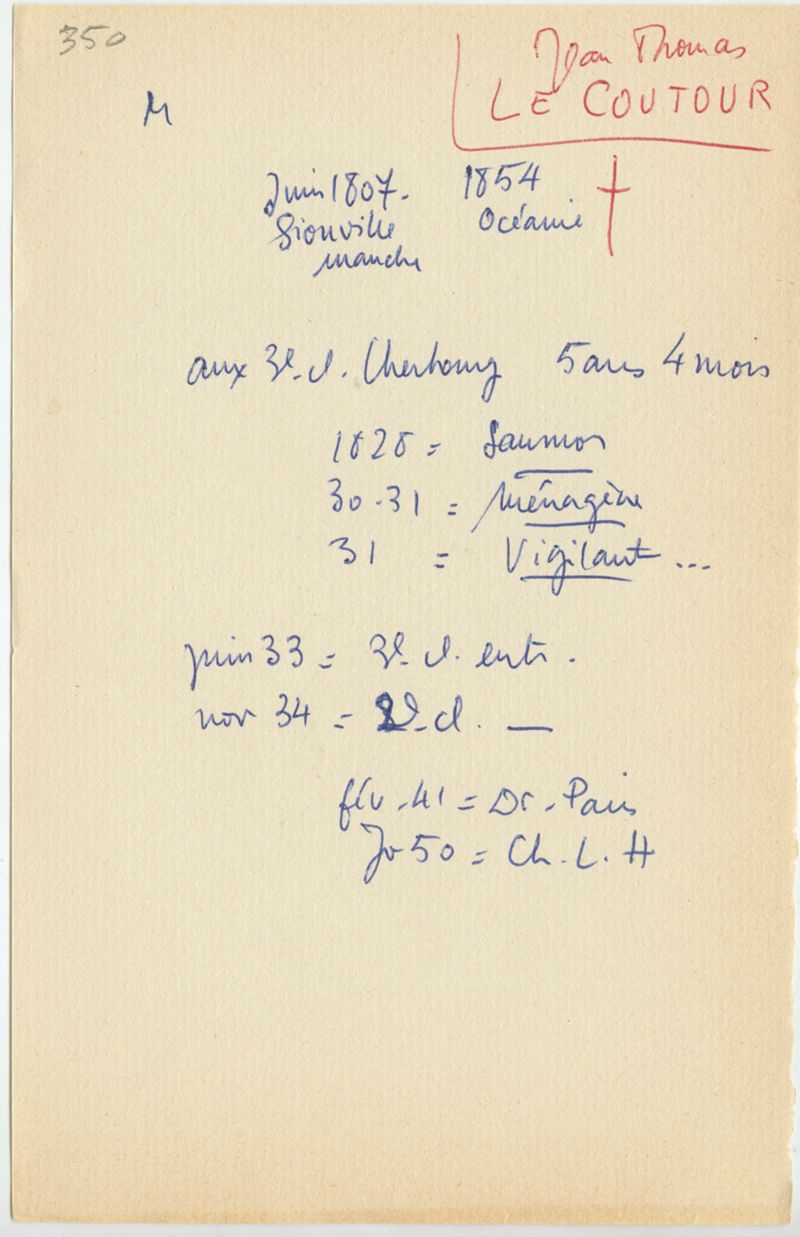 350
Jean Thomas
LE COUTOUR
M
Juin 1807. 1854
Sionville Océanie
manche
aux 3e. cl. Cherbourg 5 ans 4 mois
1828 = Saumon
30.31 = Ménagère
31 = Vigilant ...
juin 33 = 3e. cl. entr.
nov 34 = 2e. cl. —
fév. 41 = Dr. Paris
Jv 50 = Ch. L. H